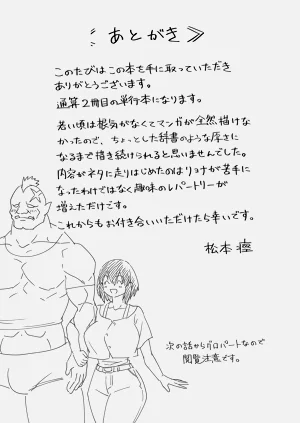 あとがき
このたびはこの本を手に取っていただき
ありがとうございます。
通算2冊目の単行本になります。
若い頃は根気がなくてマンガが全然描けな
かったので、ちょっとした辞書のような厚さに
なるまで描き続けられると思いませんでした。
内容がネタに走りはじめたのはリョナが苦手に
なったわけではなく趣味のレパートリーが
増えただけです。
これからもお付き合いいただけたら幸いです。
松本痙
次の話からグロパートなので
閲覧注意です。